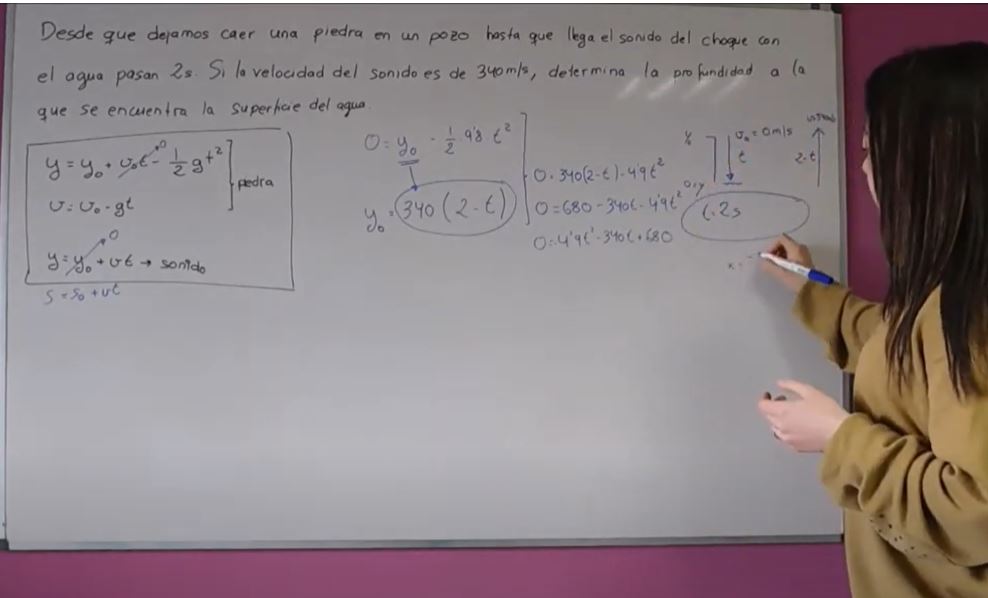 Desde que dejamos caer una piedra en un pozo hasta que llega el sonido del choque con
el agua pasan 2s. Si la velocidad del sonido es de 340m/s, determina la profundidad a la
que se encuentra la superficie del agua.
y = y₀ + v₀t - ½gt²
0
v = v₀ - gt
piedra
0
y = y₀ + vt → sonido
s = s₀ + vt
0 = y₀ - ½ 9'8 t²
y₀ = 340 (2 - t)
0 = 340(2-t) - 4'9t²
0 = 680 - 340t - 4'9t²
0 = 4'9t² - 340t + 680
v₀ = 0m/s
t
2-t
t = 2s
x =